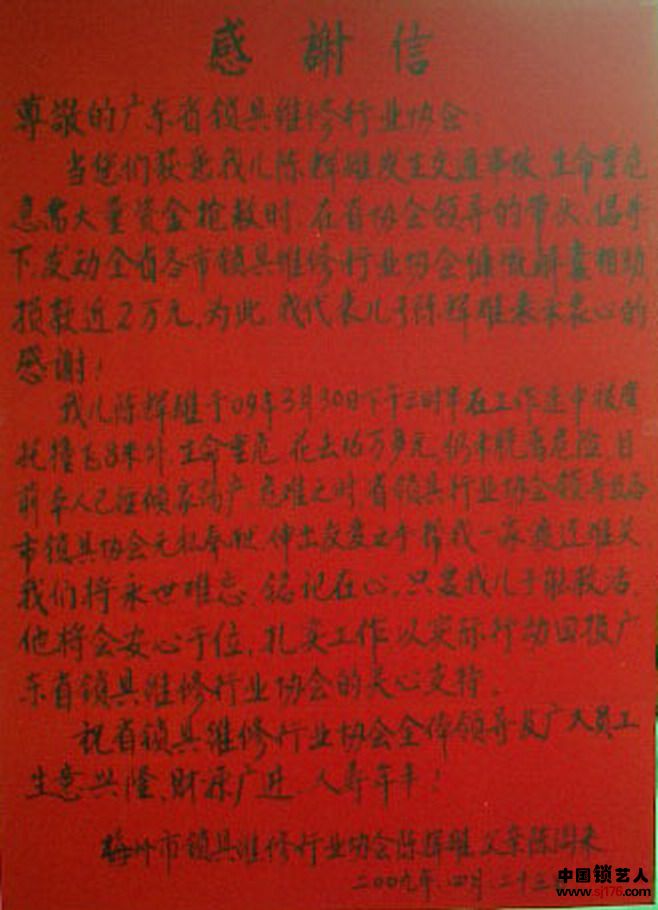 感謝信
尊敬的广东省锁具维修行业协会:
当您们获悉我儿陈辉雄发生交通事故,生命垂危
急需大量资金抢救时,在省协会领导的带头、倡导
下,发动全省各市锁具维修行业协会慷慨解囊相助,
捐款近2万元,为此,我代表儿子陈辉雄表示衷心的
感谢!
我儿陈辉雄于09年3月30日下午三时半在工作途中被摩
托撞飞8米外,生命垂危,花去16万多元,仍未脱离危险,目
前本人已经倾家荡产,危难之时,省锁具行业协会领导及各
市锁具协会无私奉献,伸出友爱之手帮我一家渡过难关,
我们将永世难忘,铭记在心,只要我儿子能救活,
他将会安心于位,扎实工作,以实际行动回报广
东省锁具维修行业协会的关心支持。
祝省锁具维修行业协会全体领导及广大员工
生意兴隆、财源广进、人寿年丰!
梅州市锁具维修行业协会陈辉雄父亲陈
二00九年.四月.二十三
中国锁艺人
www.sj176.com